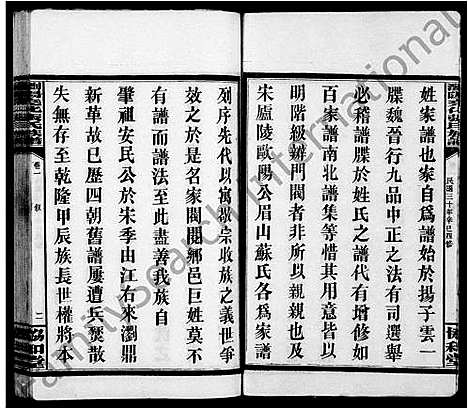 姓家譜也家自爲譜始於揚子雲一
牒魏晉行九品中正之法有司選舉
必稽譜牒於姓氏之譜代有增修如
百家譜南北譜集其用意皆以
明階級辨門閥者非所以親親也及
宋廬陵歐陽公眉山蘇氏各爲家譜
民國三十年辛巳四修
協和堂
列序先代以寓敬宗收族之義世爭
效之於是名家閥閱鄉邑巨姓莫不
有譜而譜法至此盡善我族自
肇祖安民公於宋季由江右來瀏鼎
新革故已歷四朝舊譜屢遭兵燹散
失無存至乾隆甲辰族長世權將本
卷一
敘
二
協和堂
familysearch international